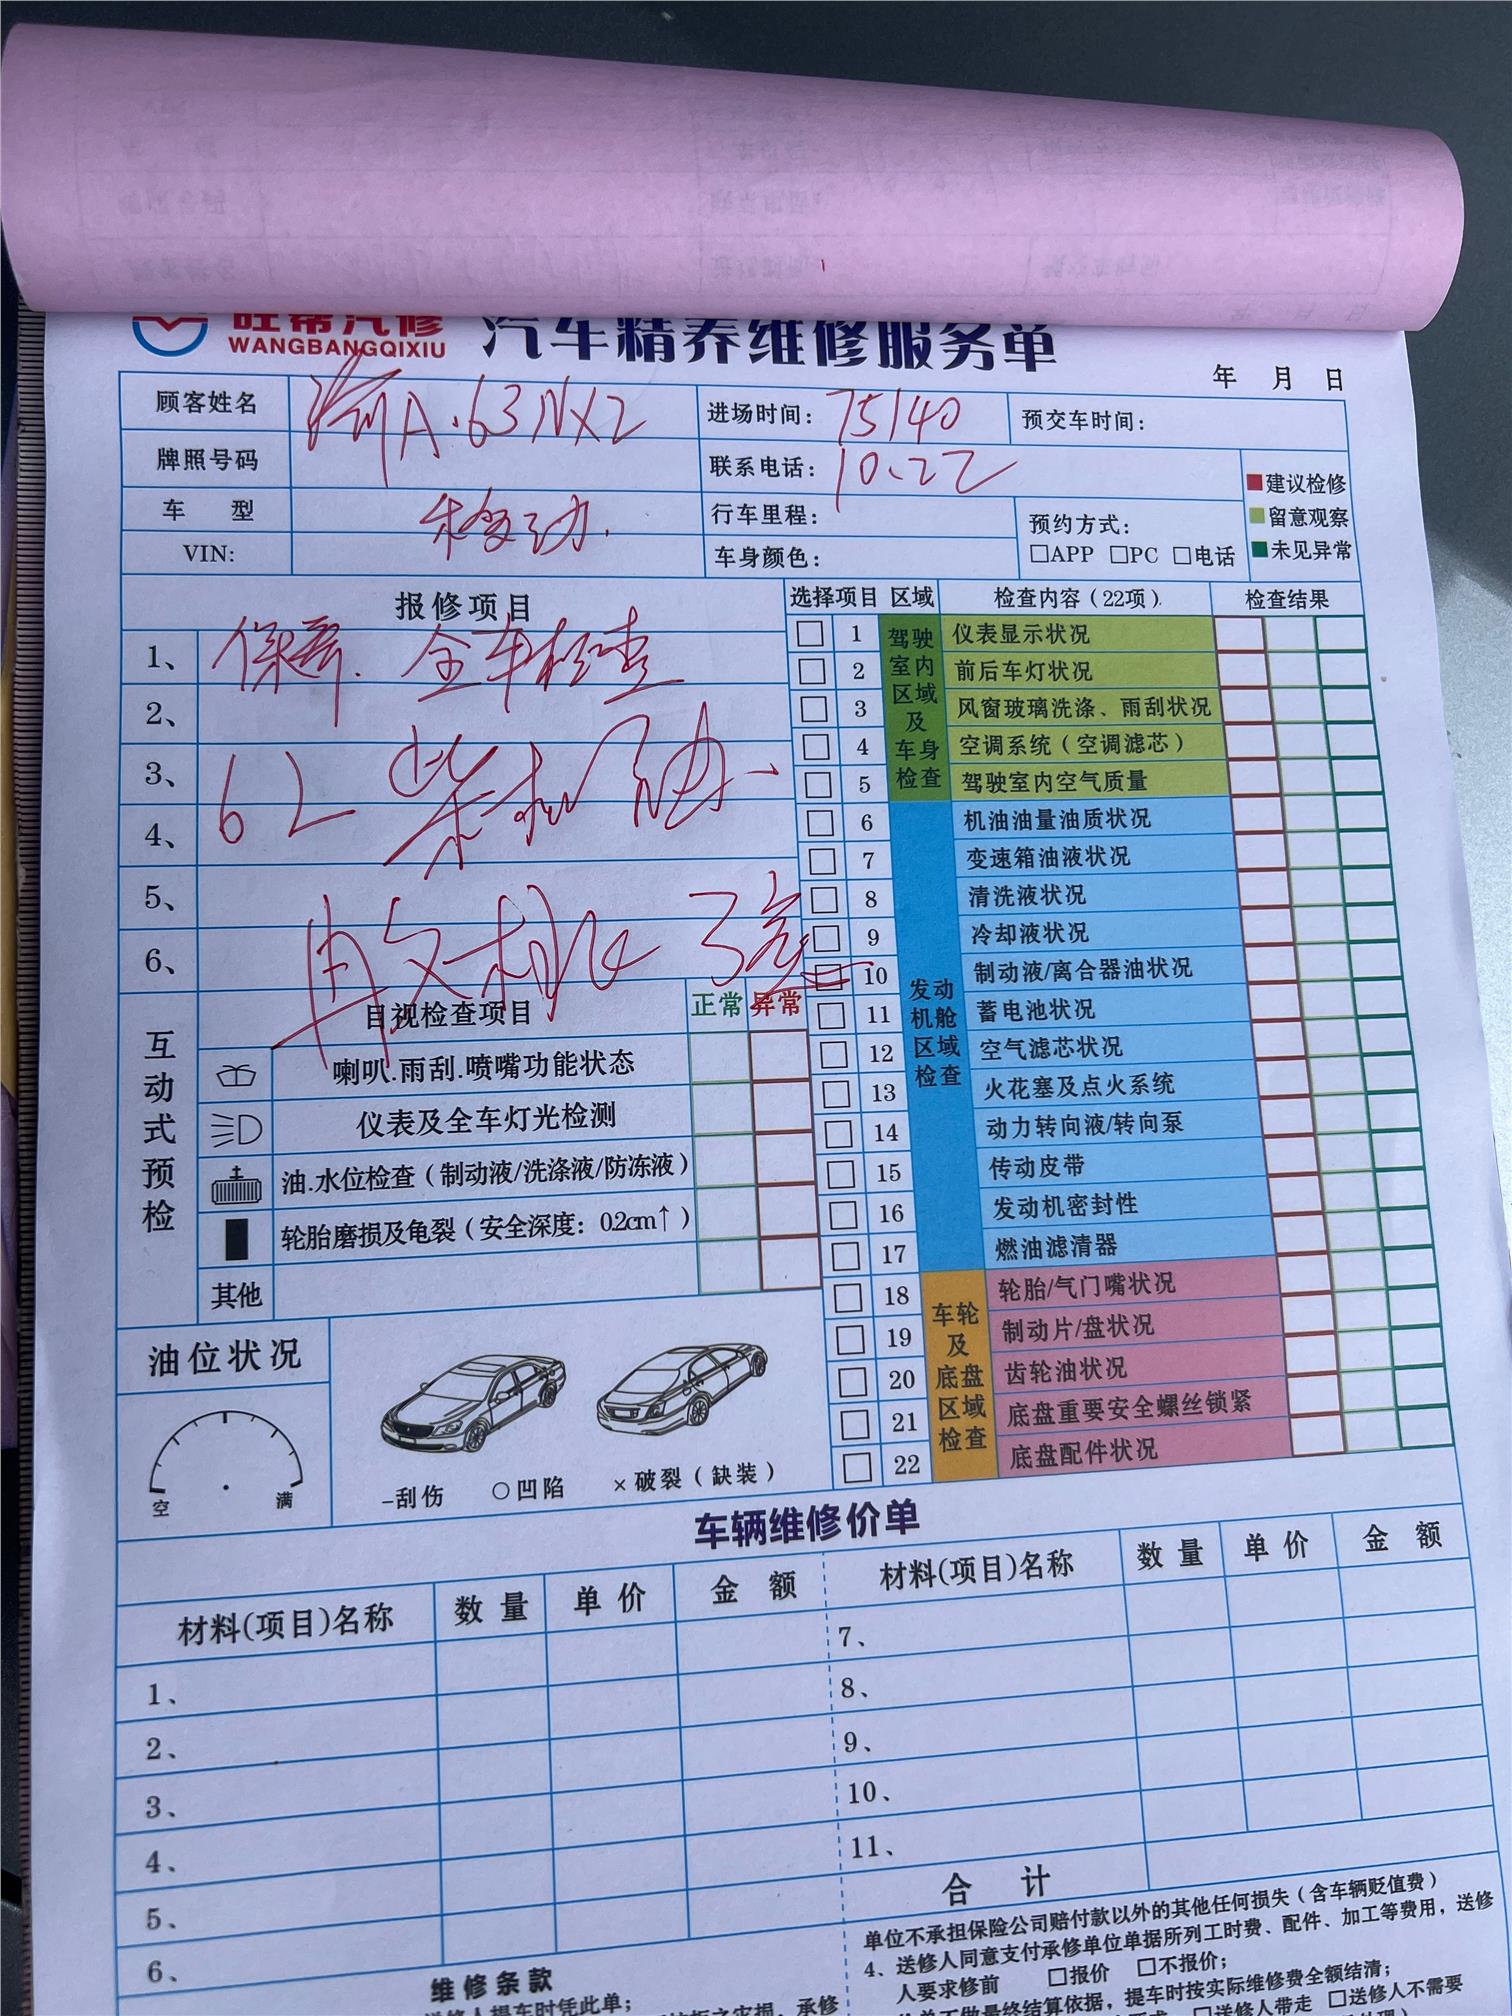 旺帮汽修
WANGBANGQIXIU
汽车精养维修服务单
年 月 日
顾客姓名 A·63NX2 进场时间: 75140 预交车时间:
牌照号码 联系电话: 10.22
■建议检修
■留意观察
■未见异常
车 型 行车里程: 预约方式:
□APP □PC □电话
VIN: 车身颜色:
报修项目
1、保养. 全车检查
2、
3、6L 柴机油、
4、
5、
6、
选择项目 区域 检查内容(22项) 检查结果
驾驶室内区域及车身检查
□ 1 仪表显示状况
□ 2 前后车灯状况
□ 3 风窗玻璃洗涤、雨刮状况
□ 4 空调系统(空调滤芯)
□ 5 驾驶室内空气质量
发动机舱区域检查
□ 6 机油油量油质状况
□ 7 变速箱油液状况
□ 8 清洗液状况
□ 9 冷却液状况
□ 10 制动液/离合器油状况
□ 11 蓄电池状况
□ 12 空气滤芯状况
□ 13 火花塞及点火系统
□ 14 动力转向液/转向泵
□ 15 传动皮带
□ 16 发动机密封性
□ 17 燃油滤清器
车轮及底盘区域检查
□ 18 轮胎/气门嘴状况
□ 19 制动片/盘状况
□ 20 齿轮油状况
□ 21 底盘重要安全螺丝锁紧
□ 22 底盘配件状况
互动式预检
目视检查项目 正常 异常
喇叭.雨刮.喷嘴功能状态
仪表及全车灯光检测
油.水位检查(制动液/洗涤液/防冻液)
轮胎磨损及龟裂(安全深度: 0.2cm↑)
其他
油位状况
空 满
-刮伤 ○凹陷 ×破裂(缺装)
车辆维修价单
材料(项目)名称 数量 单价 金额 材料(项目)名称 数量 单价 金额
1、 7、
2、 8、
3、 9、
4、 10、
5、 11、
6、 合 计
维修条款
送修人提车时凭此单;
单位不承担保险公司赔付款以外的其他任何损失(含车辆贬值费)
4、送修人同意支付承修单位单据所列工时费、配件、加工等费用，送修
人要求修前 □报价 □不报价;
提车时按实际维修费全额结清;
□送修人带走 □送修人不需要